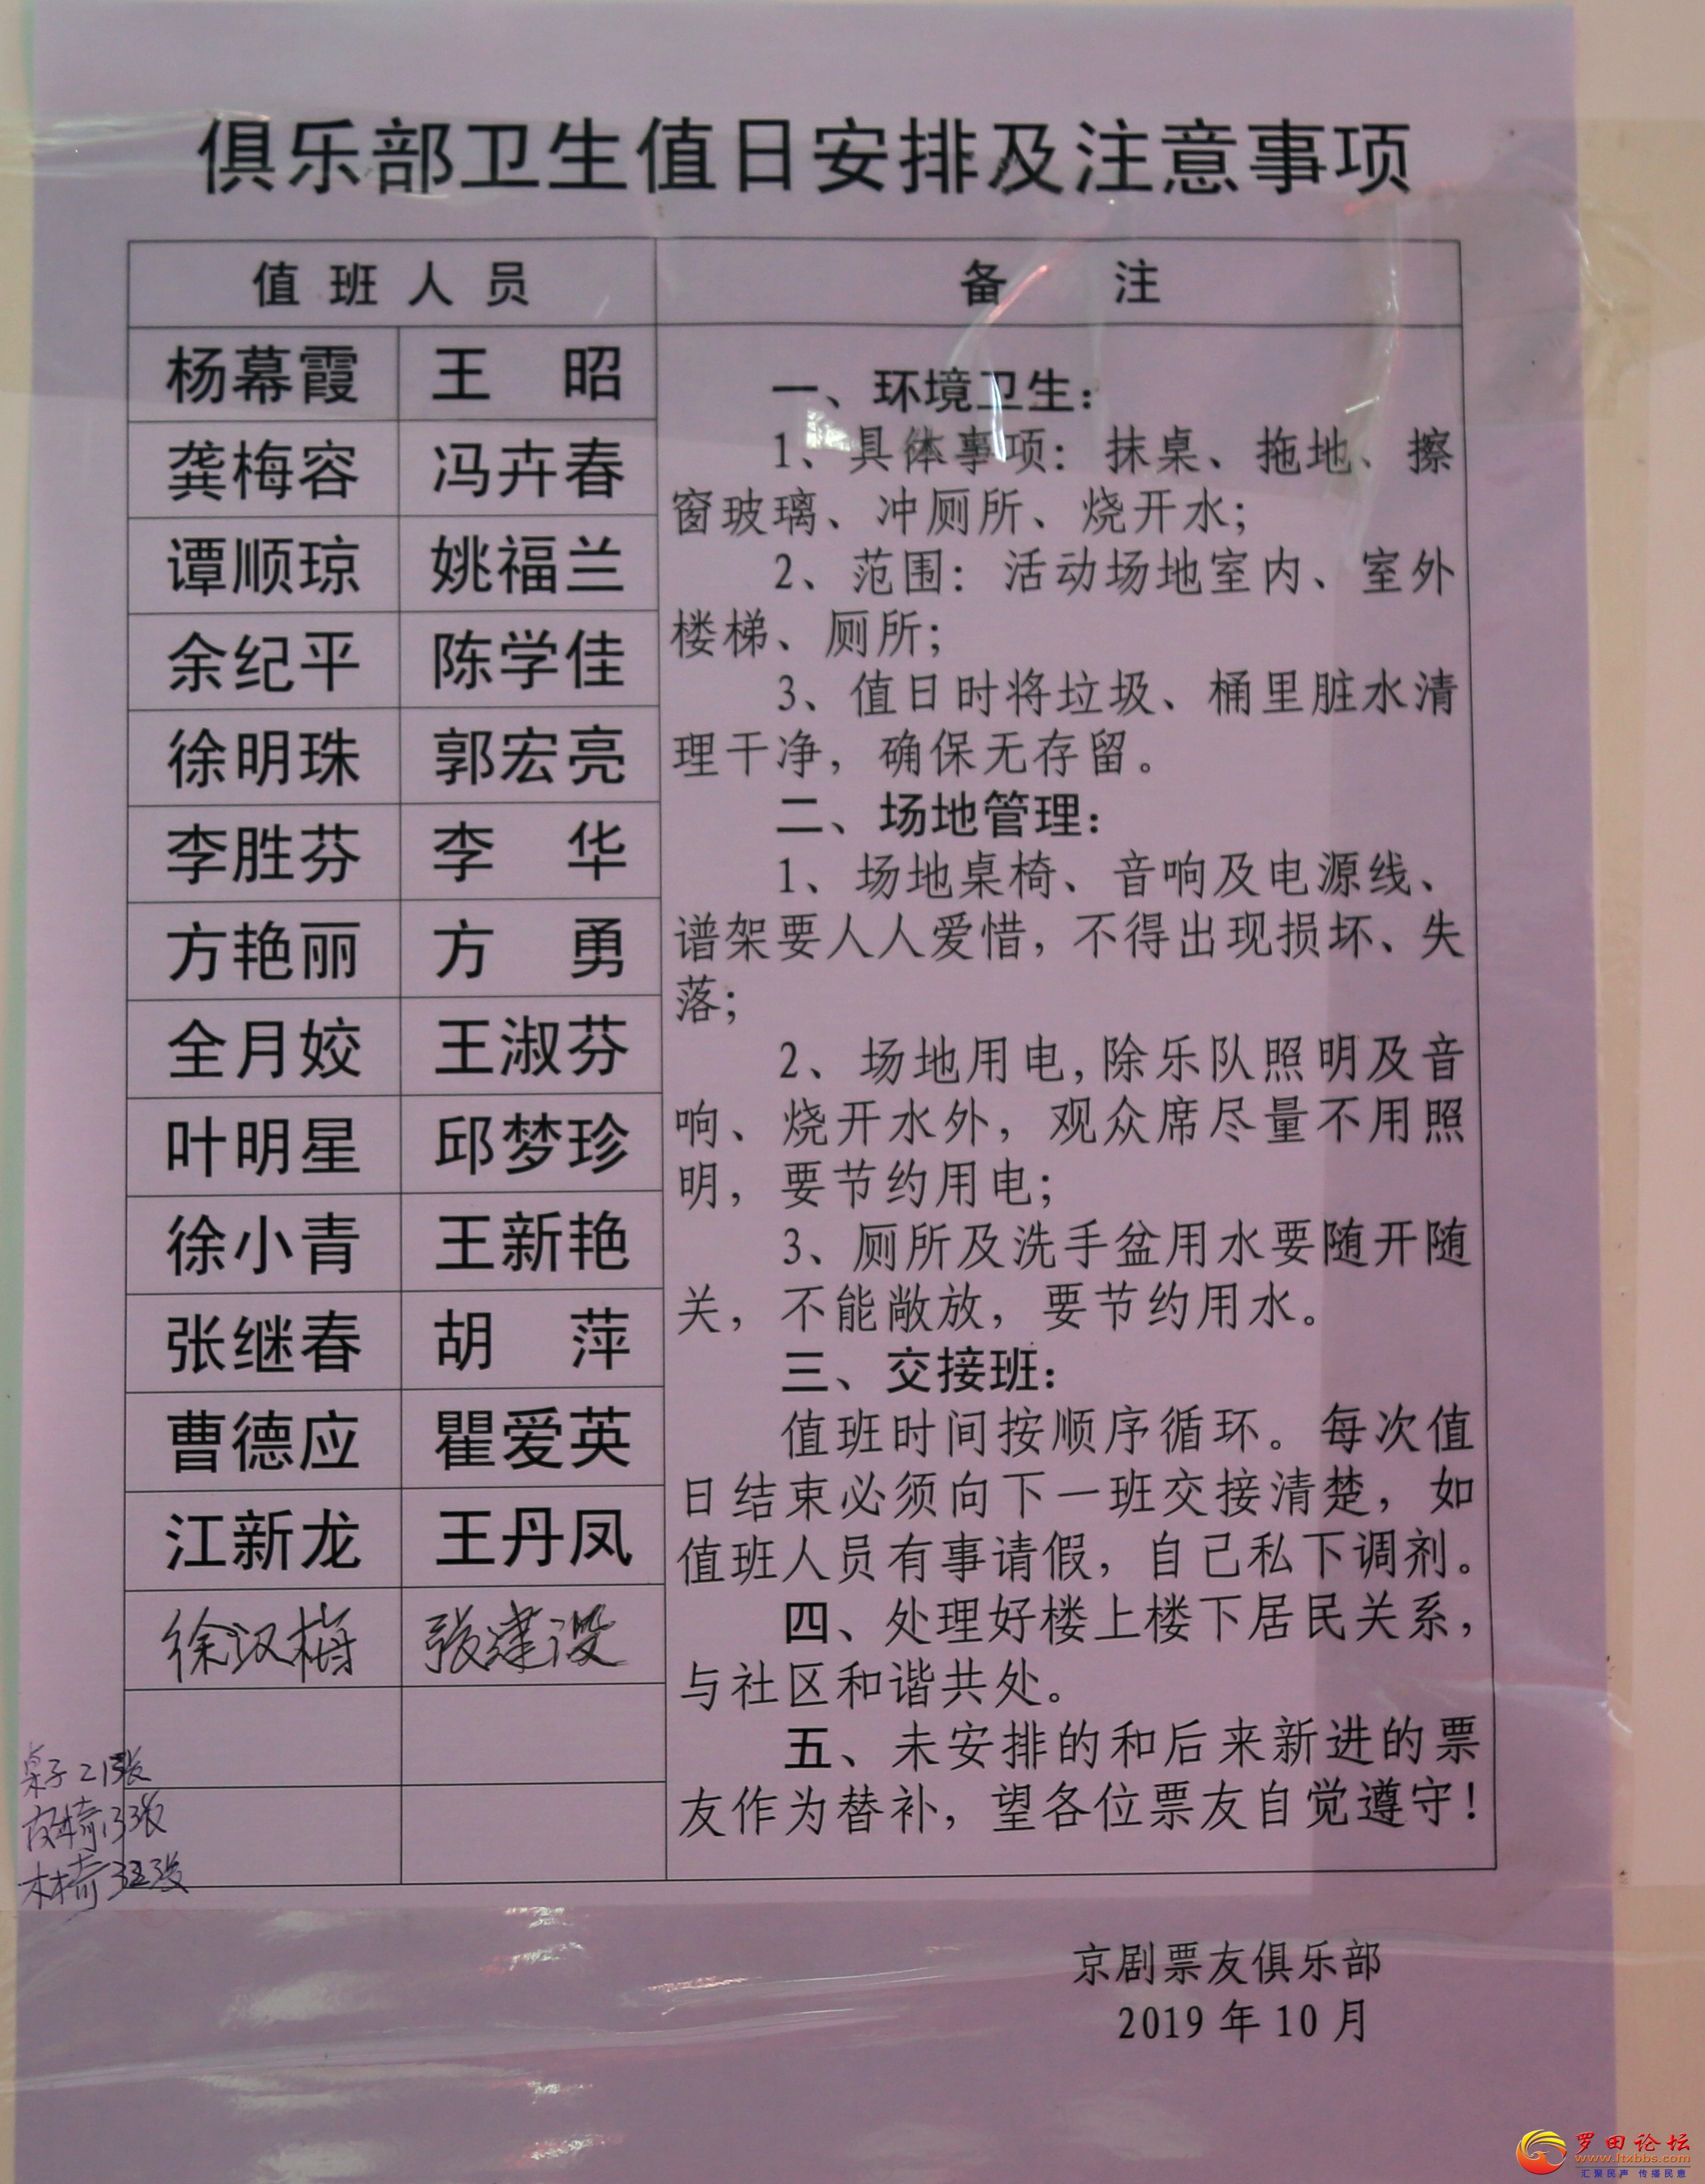 俱乐部卫生值日安排及注意事项
值班人员
备注
杨幕霞 王昭
龚梅容 冯卉春
谭顺琼 姚福兰
余纪平 陈学佳
徐明珠 郭宏亮
李胜芬 李华
方艳丽 方勇
全月姣 王淑芬
叶明星 邱梦珍
徐小青 王新艳
张继春 胡萍
曹德应 瞿爱英
江新龙 王丹凤
徐汉梅 张建设
一、环境卫生：
1、具体事项：抹桌、拖地、擦
窗玻璃、冲厕所、烧开水；
2、范围：活动场地室内、室外
楼梯、厕所；
3、值日时将垃圾、桶里脏水清
理干净，确保无存留。
二、场地管理：
1、场地桌椅、音响及电源线、
谱架要人人爱惜，不得出现损坏、失
落；
2、场地用电,除乐队照明及音
响、烧开水外，观众席尽量不用照
明，要节约用电；
3、厕所及洗手盆用水要随开随
关，不能敞放，要节约用水。
三、交接班：
值班时间按顺序循环。每次值
日结束必须向下一班交接清楚，如
值班人员有事请假，自己私下调剂。
四、处理好楼上楼下居民关系，
与社区和谐共处。
五、未安排的和后来新进的票
友作为替补，望各位票友自觉遵守！
桌子
皮椅13张
木椅
京剧票友俱乐部
2019年10月
罗田论坛
www.ltxbbs.com
汇聚民声 传播民意